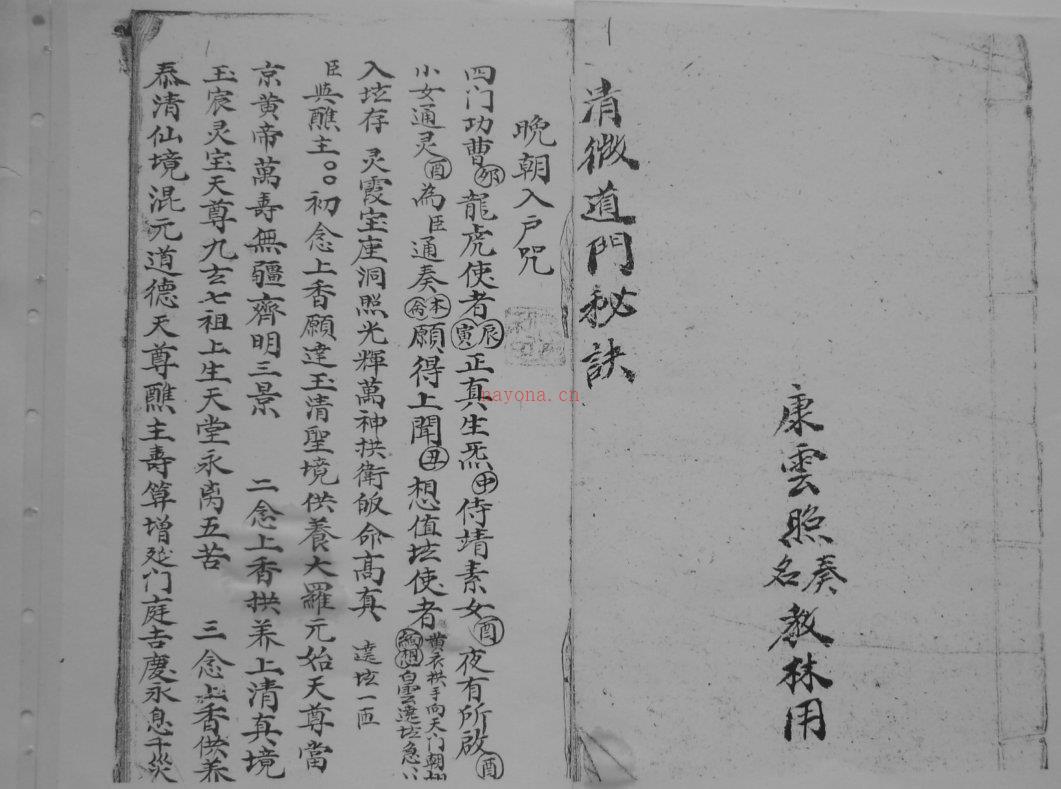 康雲照
奏名
教林用
清微道門秘訣
晚朝入户咒
四门功曹卯龍虎使者寅辰正真生炁申侍靖素女酉夜有所啟酉
小女通灵酉為臣通奏本願得上聞丑想值坛使者黄衣拱手向天门朝白雲遶坛急
入坛存灵霞宝座洞照光輝萬神拱衛皈命髙真遶坛一匝
臣與醮主〇〇初念上香願達玉清聖境供養大羅元始天尊當
京黄帝萬寿無疆齊明三景 二念上香拱养上清真境
玉宸灵宝天尊九玄七祖上生天堂永离五苦 三念上香供养
泰清仙境混元道德天尊醮主寿算增延门庭吉慶永息千災
nayona.cn